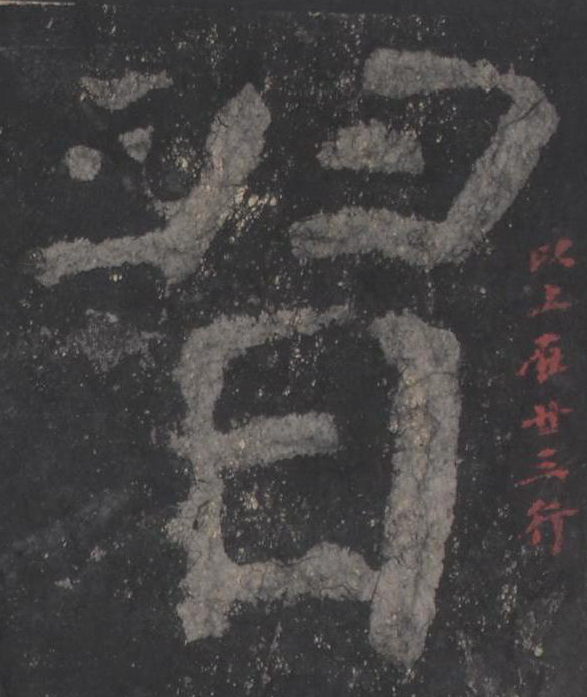 以上在廿三行
習